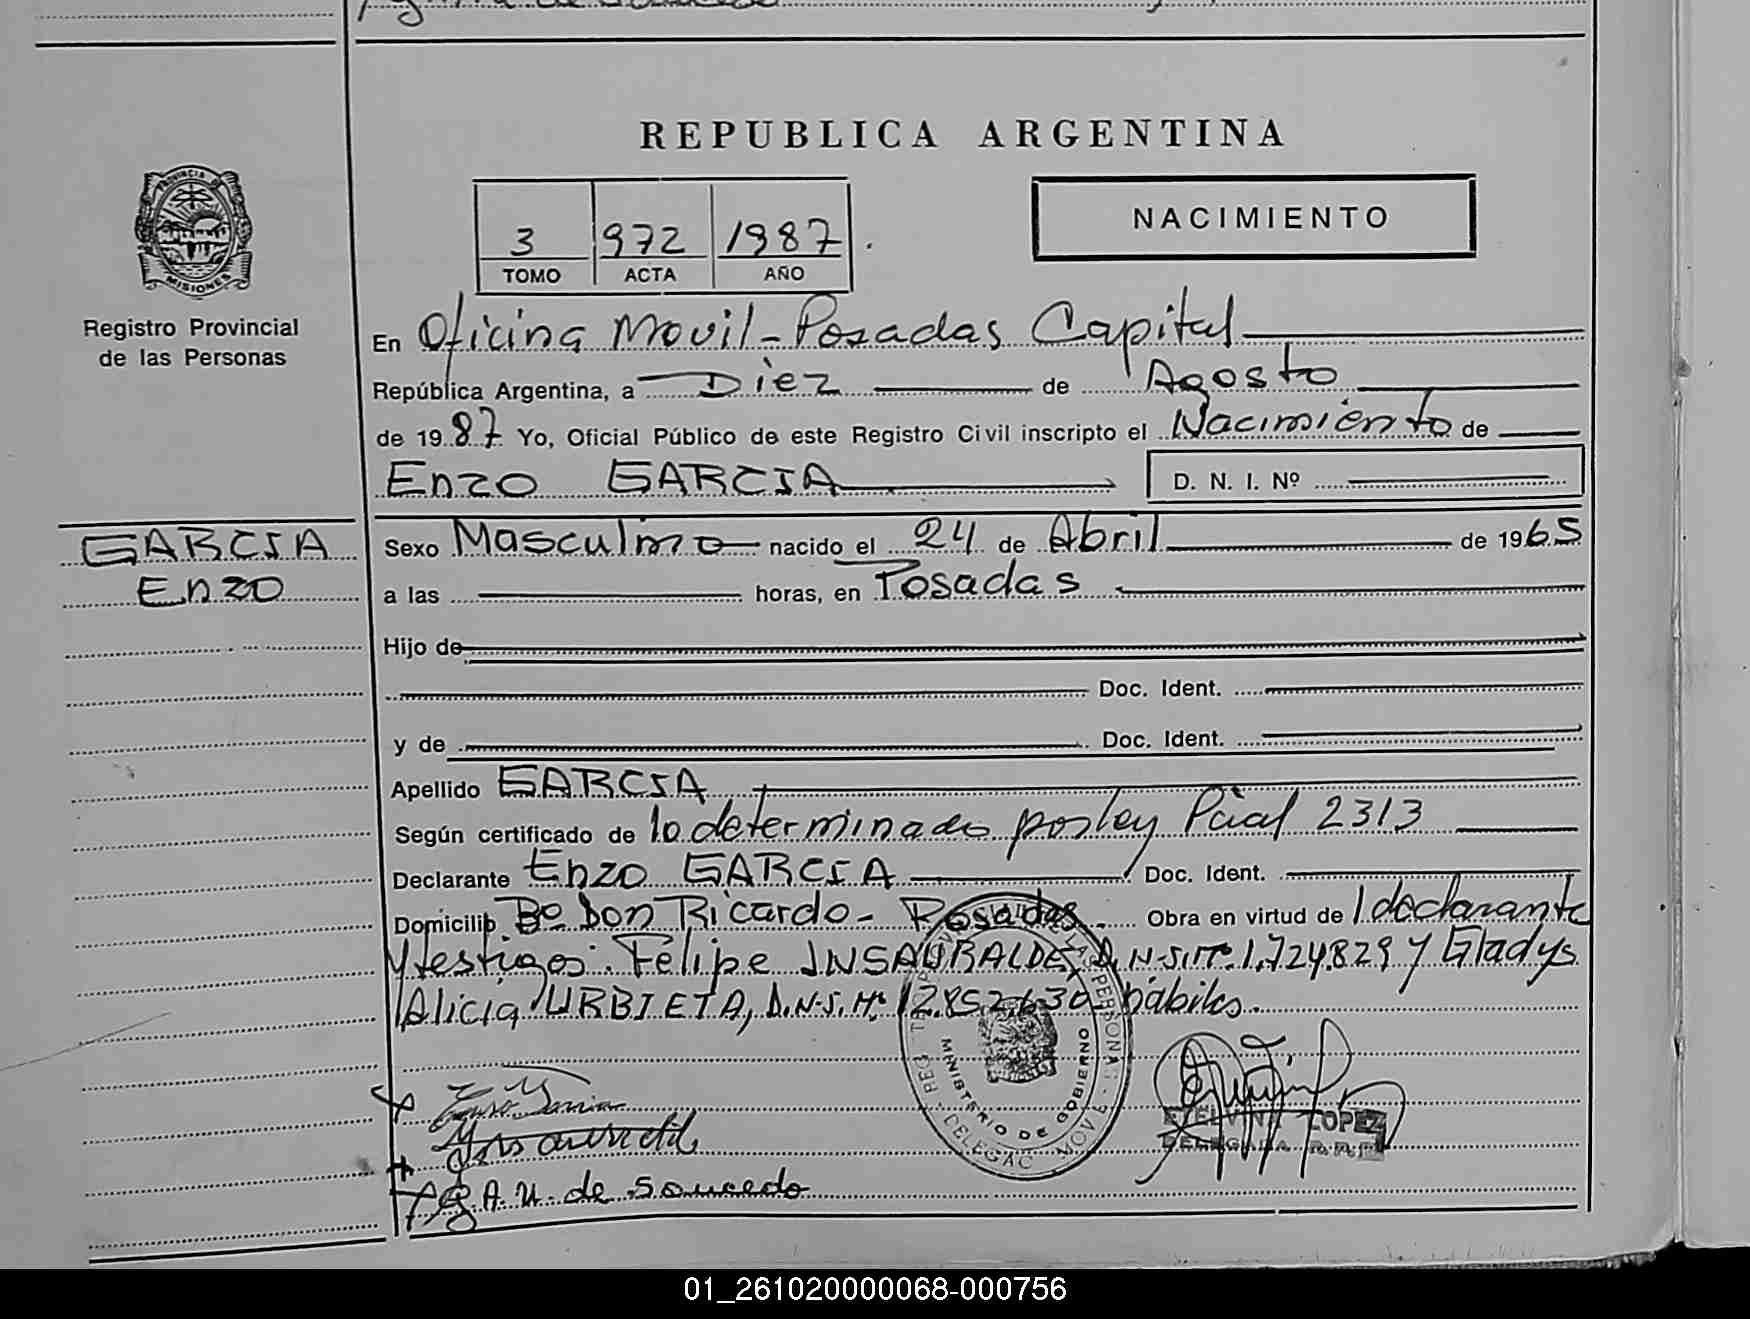 REPUBLICA ARGENTINA
PROVINCIA DE
MISIONES
Registro Provincial
de las Personas
3 972 1987
TOMO ACTA AÑO
NACIMIENTO
En Oficina Movil - Posadas Capital
República Argentina, a Diez de Agosto
de 1987 Yo, Oficial Público de este Registro Civil inscripto el Nacimiento de
Enzo GARCIA D. N. I. Nº
GARCIA
Enzo
Sexo Masculino nacido el 24 de Abril de 1965
a las horas, en Posadas
Hijo de
Doc. Ident.
y de Doc. Ident.
Apellido GARCIA
Según certificado de lo determinado por ley Pcial 2313
Declarante Enzo GARCIA Doc. Ident.
Domicilio Bº Don Ricardo - Posadas Obra en virtud de declarante
y testigos: Felipe INSAURALDE, D.N.I. Nº 1.724.829 y Gladys
Alicia URBIETA, D.N.I. Nº 12.852.630 hábiles.
MINISTERIO DE GOBIERNO
ETELVINA LOPEZ
DELEGADA
G. A. U. de Soucedo
01_261020000068-000756